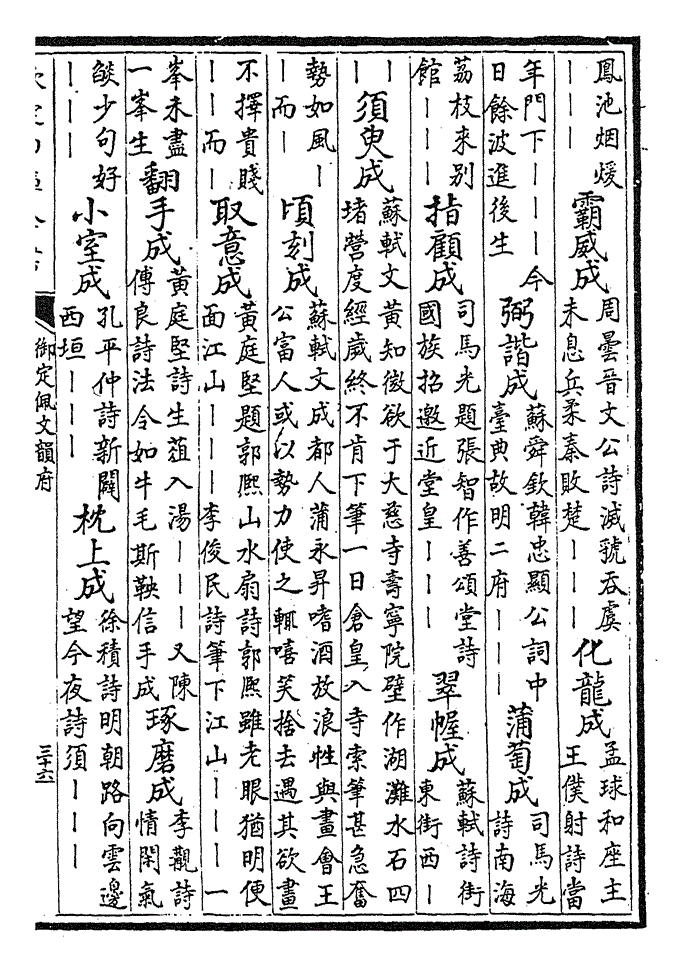 鳳池烟煖｜｜｜霸威成周曇晉文公詩滅虢吞虞未息兵柔秦敗楚｜｜｜化龍成孟球和座主王僕射詩當
年門下｜｜｜今日餘波進後生弼諧成蘇舜欽韓忠顯公詞中臺典故明二府｜｜｜蒲萄成司馬光詩南海
荔枝來别館｜｜｜指顧成司馬光題張智作善頌堂詩國族招邀近堂皇｜｜｜翠幄成蘇軾詩街東街西｜
｜須臾成蘇軾文黄知微欲于大慈寺壽寧院壁作湖灘水石四堵營度經歲終不肯下筆一日倉皇入寺索筆甚急奮
勢如風｜｜而｜頃刻成蘇軾文成都人蒲永昇嗜酒放浪性與畫會王公富人或以勢力使之輒嘻笑捨去遇其欲畫
不擇貴賤｜｜而｜取意成黄庭堅題郭熈山水扇詩郭熈雖老眼猶明便面江山｜｜｜李俊民詩筆下江山｜｜｜一
峯未盡一峯生翻手成黄庭堅詩生葅入湯｜｜｜又陳傅良詩法令如牛毛斯鞅信手成琢磨成李觀詩情閑氣
燄少句好｜｜｜小室成孔平仲詩新闢西垣｜｜｜枕上成徐積詩明朝路向雲邊望今夜詩須｜｜｜
御定佩文韻府
三十六